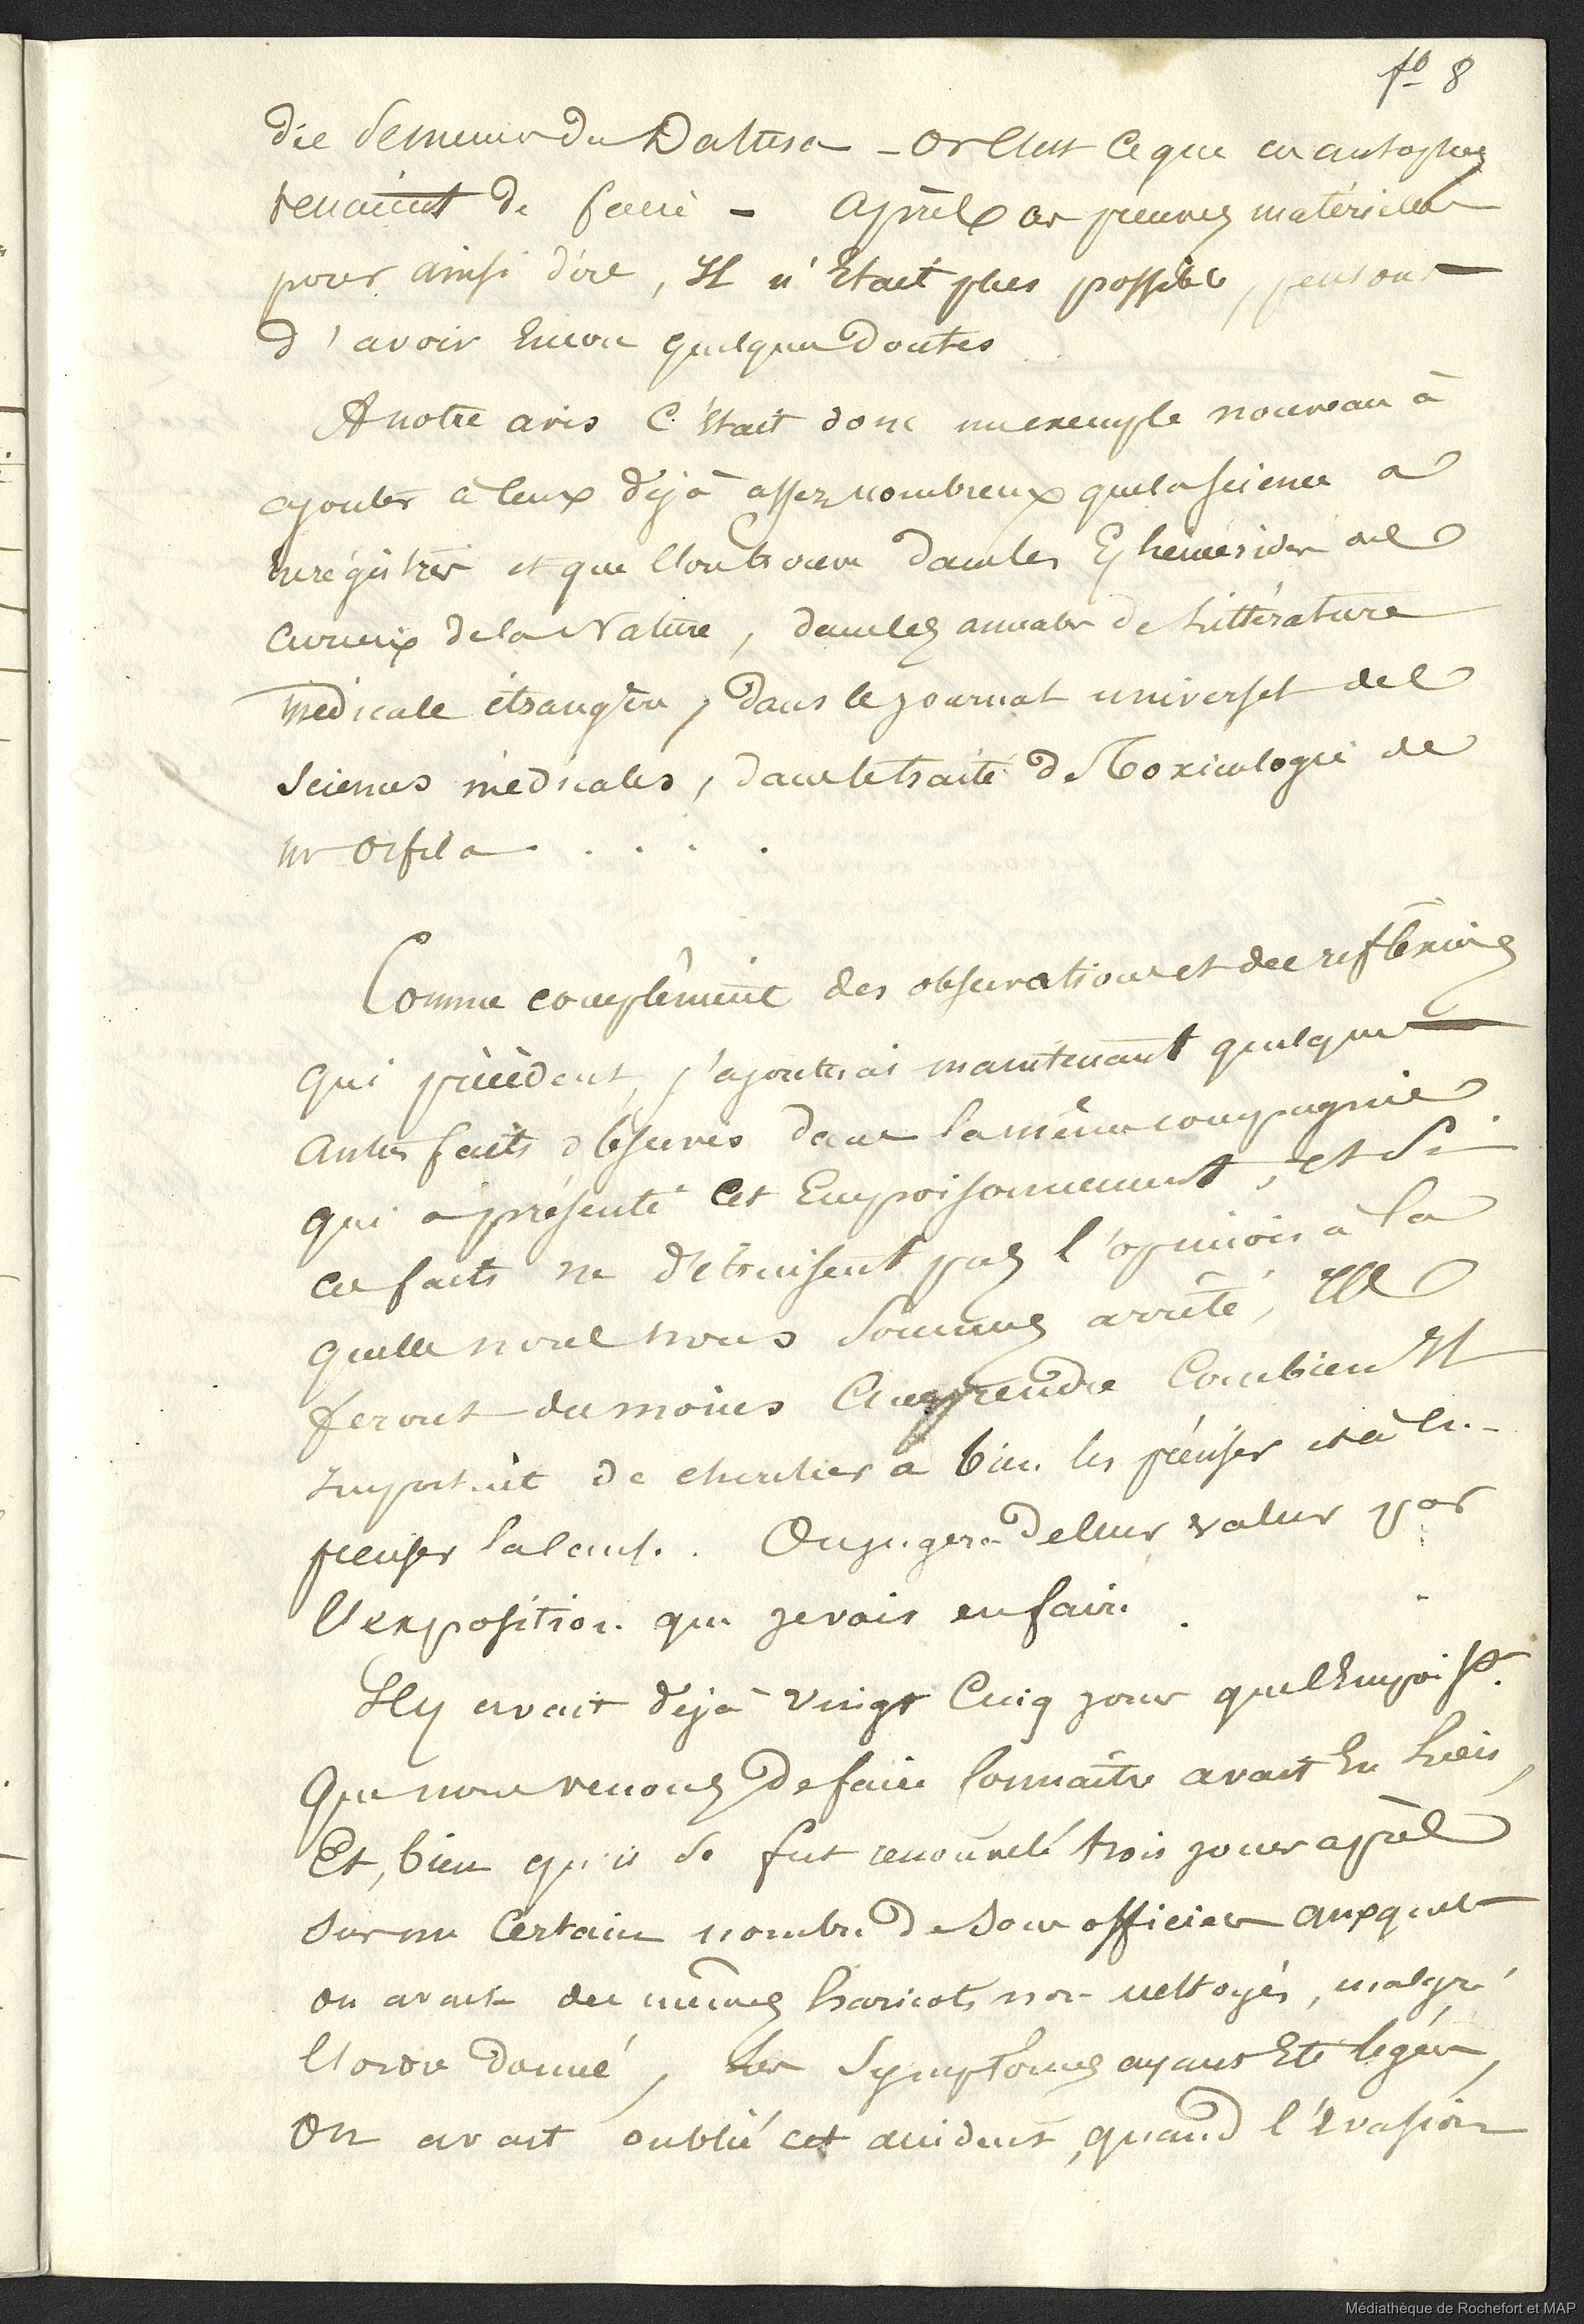 fo 8
die semences du Datura - or c'est ce que ces autopsies
venaient de faire - après ces preuves matérielles
pour ainsi dire, Il n'était plus possible, pensons
d'avoir encore quelques doutes
A notre avis c'était donc un exemple nouveau à
ajouter à ceux déjà assez nombreux que la science a
enrégistrés et que l'on trouve dans les Ephémérides des
curieux de la Nature, dans les annales de Littérature
médicale étrangère, dans le journal universel des
sciences médicales, dans le traité de Toxicologie de
mr Orfila . . . . .
Comme complément des observations et des réfléxions
qui précèdent, j'ajouterai maintenant quelques
autres faits observés dans la même compagnie
qui a présenté cet Empoisonnement, et si
ces faits ne détruisent pas l'opinion à la
quelle nous nous sommes arrêté, Ils
feront du moins comprendre combien Il
importait de chercher à bien les préciser et à en
préciser la cause. On jugera de leur valeur par
l'exposition que je vais en faire.
Il y avait déjà vingt cinq jours que l'Empoisst.
que nous venons de faire connaître avait Eu lieu,
Et, bien qu'il se fut renouvelé trois jours après
sur un certain nombre de sous officiers auxquels
on avait des mêmes haricots non nettoyés, malgré
l'ordre donné, Les symptômes ayant Eté légers,
On avait oublié cet accident, quand l'évasion